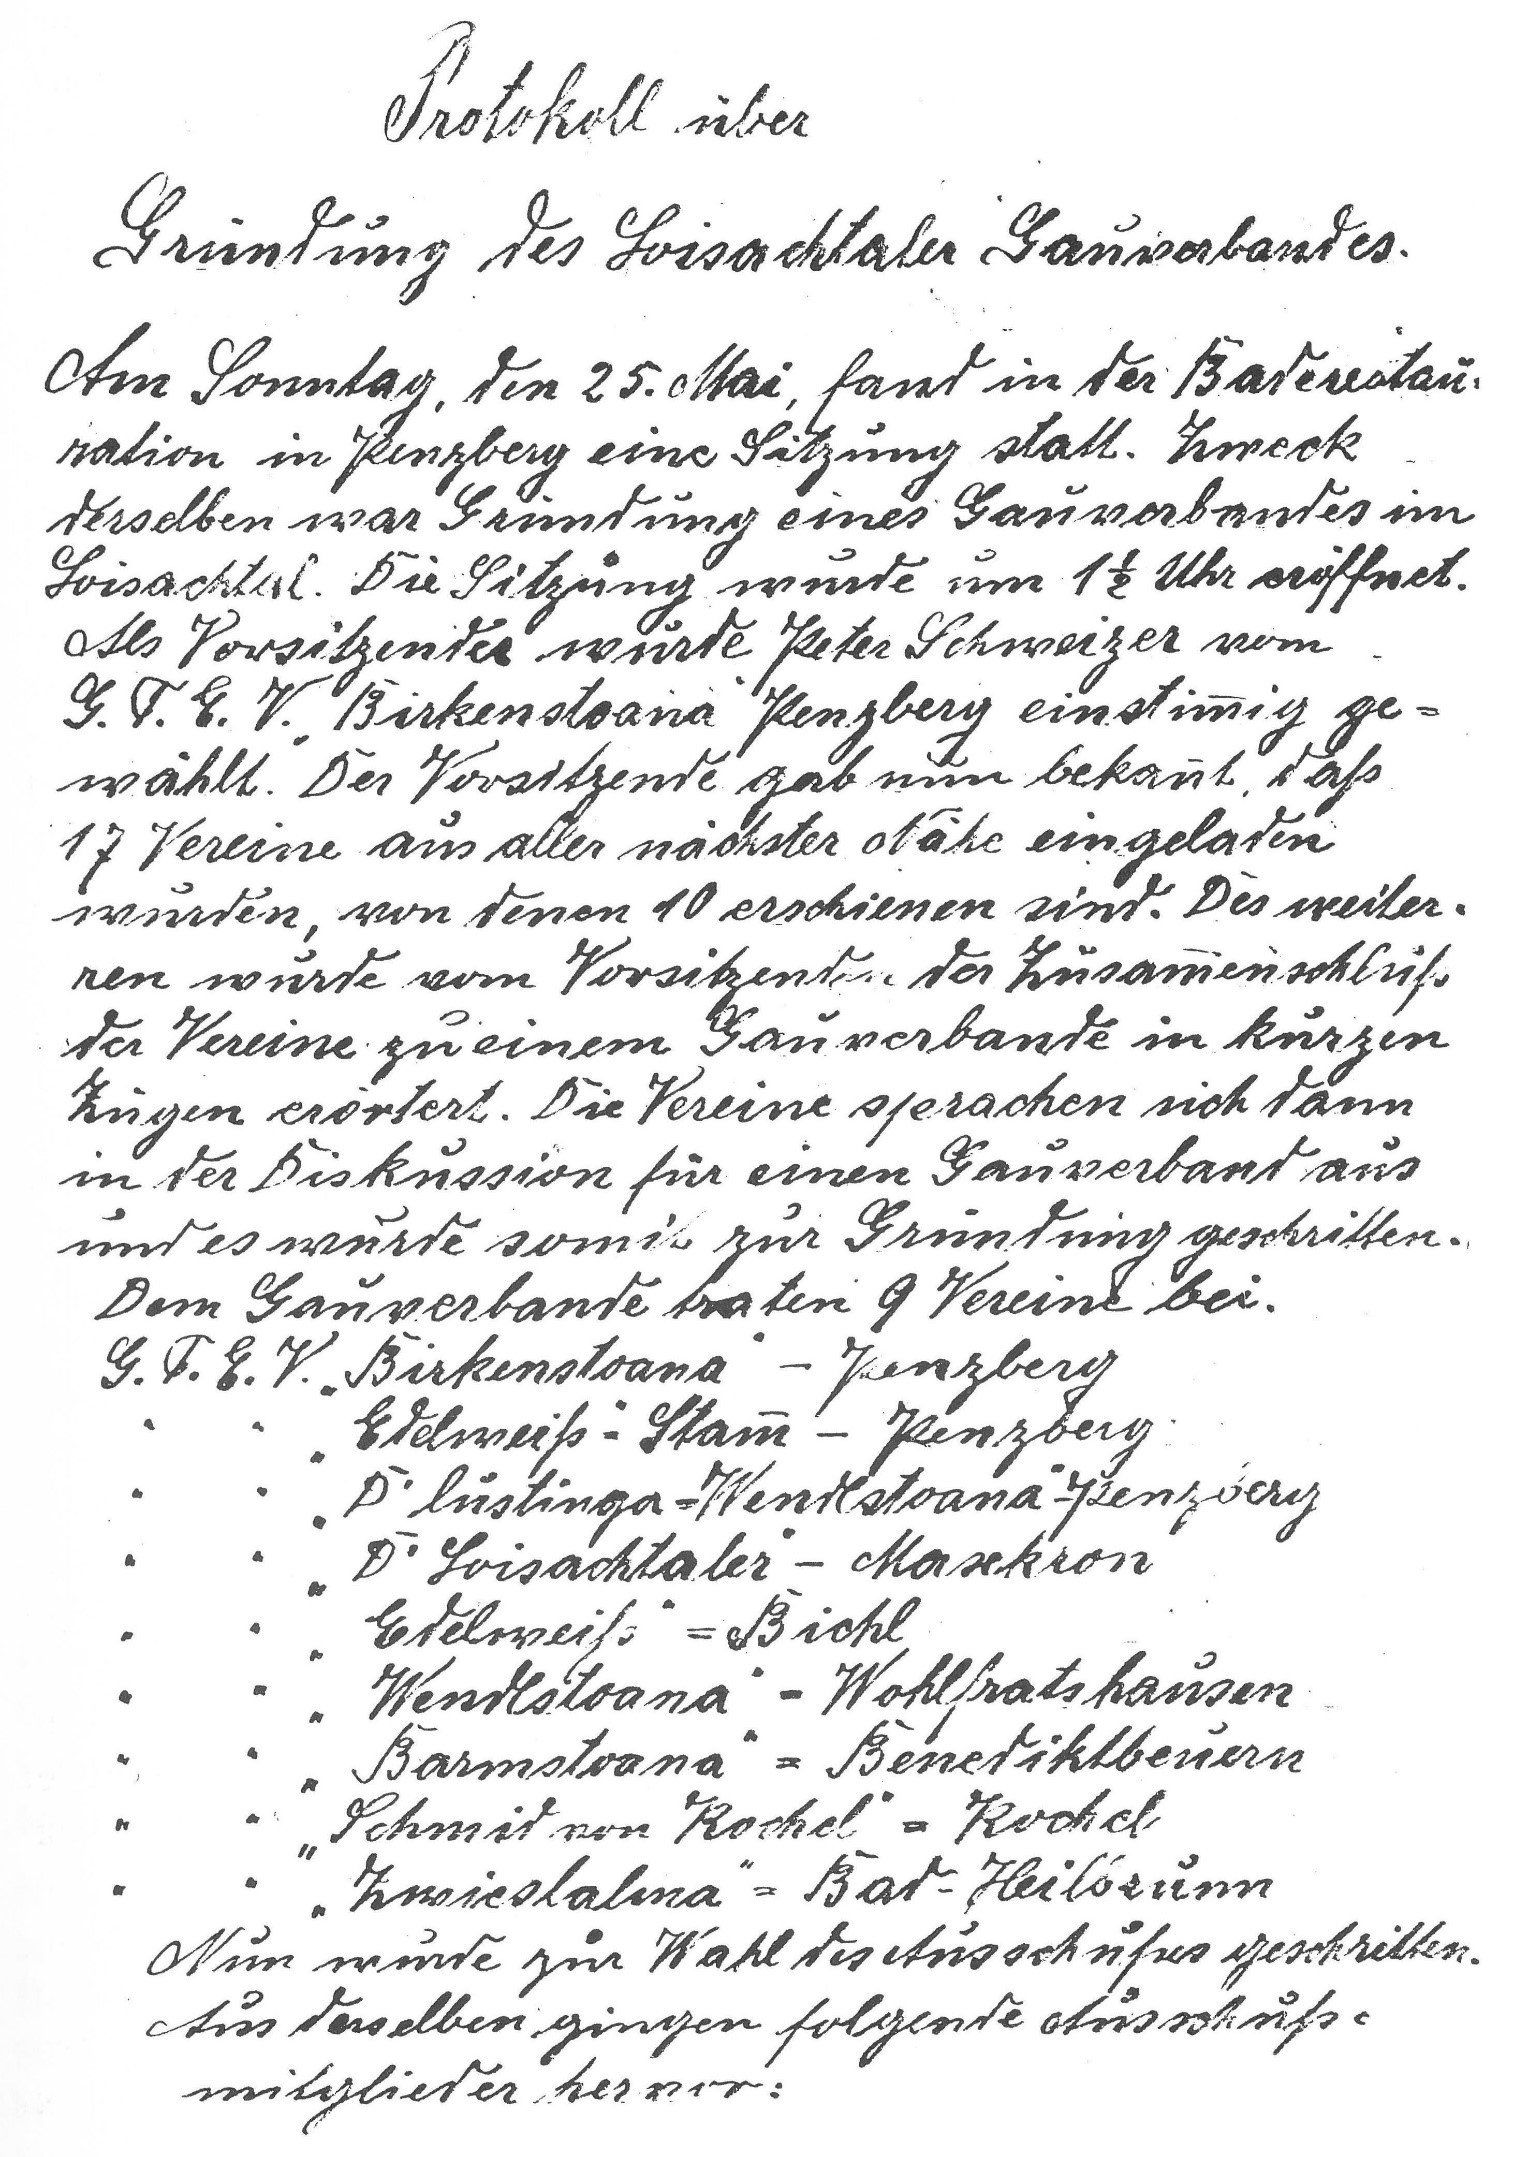 Protokoll über
Gründung des Loisachtaler Gauverbandes.
Am Sonntag, den 25. Mai, fand in der Baderestau-
ration in Penzberg eine Sitzung statt. Zweck
derselben war Gründung eines Gauverbandes im
Loisachtal. Die Sitzung wurde um 1½ Uhr eröffnet.
Als Vorsitzender wurde Peter Schweizer vom
G. T. E. V. „Birkenstoana" Penzberg einstim̄ig ge=
wählt. Der Vorsitzende gab nun bekan̄t, daß
17 Vereine aus aller nächster Nähe eingeladen
wurden, von denen 10 erschienen sind. Des weiter-
ren wurde vom Vorsitzenden der Zusam̄enschluß
der Vereine zu einem Gauverbande in kurzen
Zügen erörtert. Die Vereine sprachen sich dann
in der Diskussion für einen Gauverband aus
und es wurde somit zur Gründung geschritten.
Dem Gauverbande traten 9 Vereine bei.
G. T. E. V. „Birkenstoana" – Penzberg
" " „Edelweiß"- Stam̄ – Penzberg
" " „D' lustinga=Wendlstoana"-Penzberg
" " „D' Loisachtaler" – Maxkron
" " „Edelweiß" = Bichl
" " „Wendlstoana" - Wohlfratshausen
" " „Barmstoana" = Benediktbeuern
" " „Schmid von Kochel" = Kochel
" " „Zwieslalma" = Bad- Heilbrunn
Nun wurde zur Wahl des Ausschußes geschritten.
Aus derselben gingen folgende Ausschuß=
mitglieder hervor: